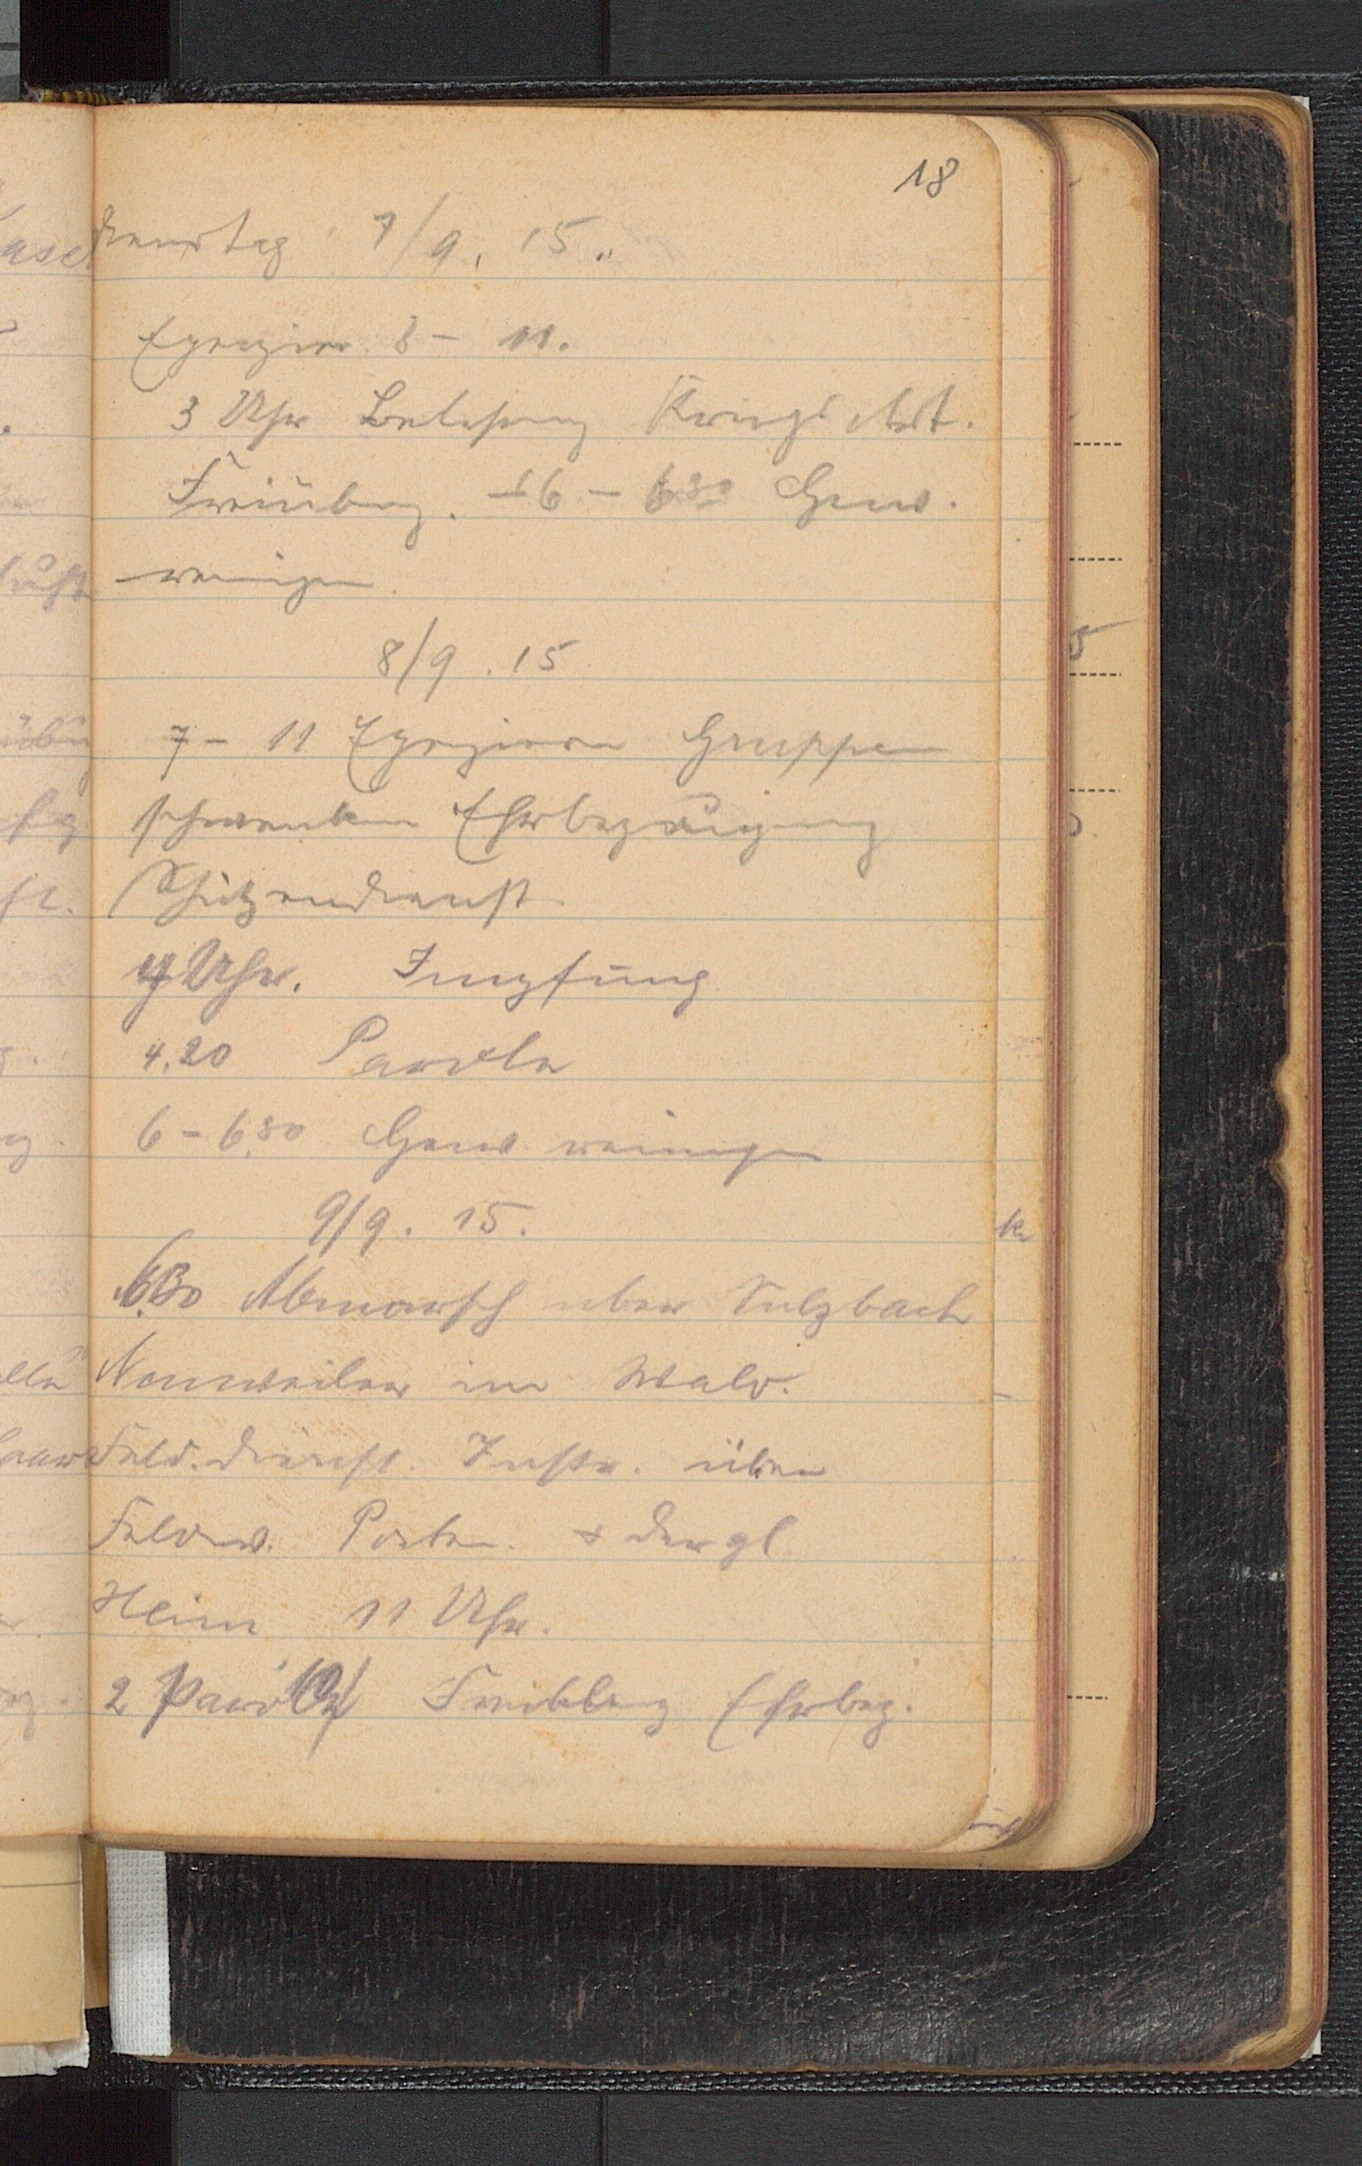 18
Dienstag 7/9. 15.
Exerzier 8 - 11.
3 Uhr Belehrung Kriegs Art.
Freiübung. 6 - 6 30 Gew.
reinigen
8/9. 15
7 - 11 Exerzieren Gruppen
schwenken Ehrbezeugung
Schützendienst
4 Uhr. Impfung
4.20 Parole
6 - 6.30 Gew. reinigen
9/9. 15.
6.30 Abmarsch über Sulzbach
Neuweiler im Wald.
Feld. dienst. Instr. über
Feldw. Posten. & dergl
Heim 11 Uhr.
2 Parole Ehrbez.